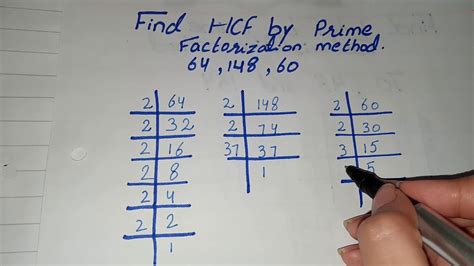 Find HCF by Prime
Factorization method.
64, 148, 60
2 64
2 32
2 16
2 8
2 4
2 2
1
2 148
2 74
37 37
1
2 60
2 30
3 15
5